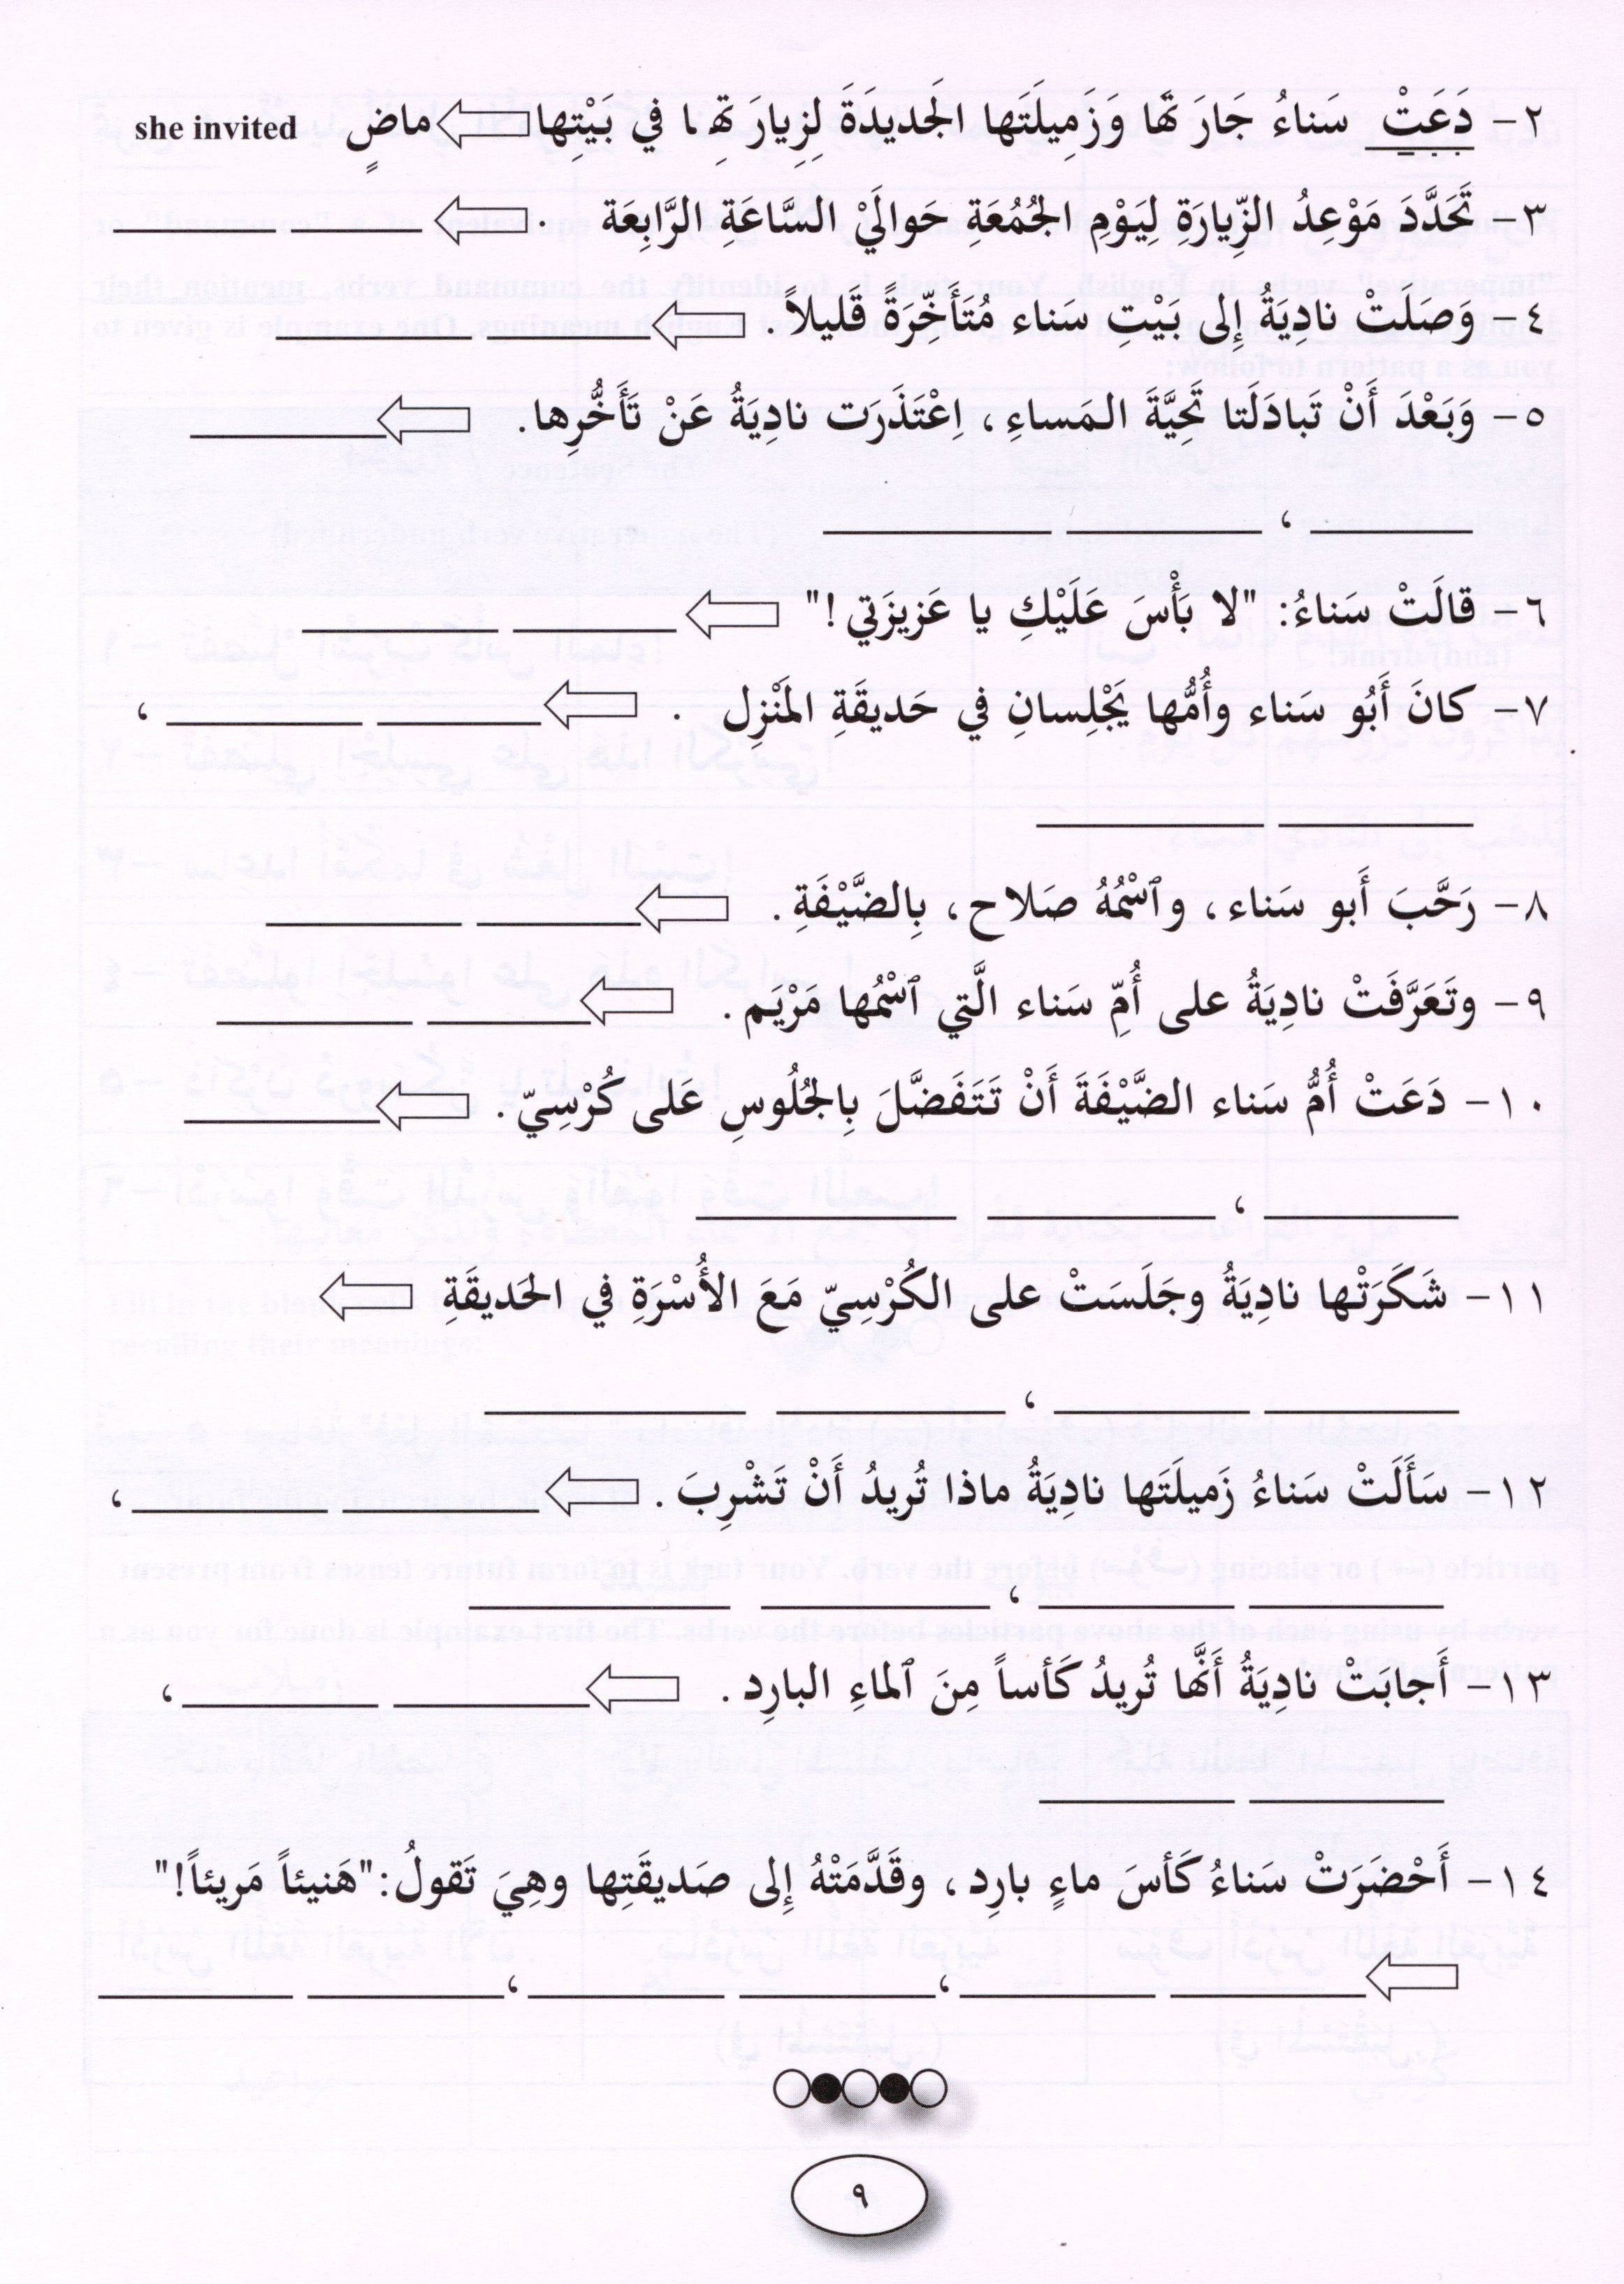 ٢- دَعَتْ سَناءُ جَارَتَها وَزَمِيلَتَها الجَديدَةَ لِزِيارَتِها، في بَيْتِها ماضٍ she invited
٣- تَحَدَّدَ مَوْعِدُ الزِّيارَةِ لِيَوْمِ الجُمُعَةِ حَوالَيْ السَّاعَةِ الرَّابِعَة .
٤- وَصَلَتْ نادِيَةُ إِلى بَيْتِ سَناء مُتَأَخِّرَةً قليلاً .
٥- وَبَعْدَ أَنْ تَبادَلَتا تَحِيَّةَ المَساءِ، اِعْتَذَرَت نادِيَةُ عَنْ تَأَخُّرِها.
،
٦- قالَتْ سَناءُ: "لا بَأْسَ عَلَيْكِ يا عَزيزَتي!"
٧- كانَ أَبُو سَناء وأُمُّها يَجْلِسانِ في حَديقَةِ المَنْزِل . ،
٨- رَحَّبَ أَبو سَناء، وٱسْمُهُ صَلاح، بِالضَّيْفَةِ.
٩- وتَعَرَّفَتْ نادِيَةُ على أُمِّ سَناء الَّتي ٱسْمُها مَرْيَم.
١٠- دَعَتْ أُمُّ سَناء الضَّيْفَةَ أَنْ تَتَفَضَّلَ بِالجُلُوسِ عَلى كُرْسِيّ.
،
١١- شَكَرَتْها نادِيَةُ وجَلَسَتْ على الكُرْسِيّ مَعَ الأُسْرَةِ في الحَديقَةِ
،
١٢- سَأَلَتْ سَناءُ زَميلَتَها نادِيَةُ ماذا تُريدُ أَنْ تَشْرِبَ. ،
،
١٣- أَجابَتْ نادِيَةُ أَنَّها تُريدُ كَأساً مِنَ ٱلماءِ البارِد. ،
١٤- أَحْضَرَتْ سَناءُ كَأسَ ماءٍ بارِد، وقَدَّمَتْهُ إِلى صَديقَتِها وهِيَ تَقولُ:"هَنيئاً مَريئاً!"
، ،
٩